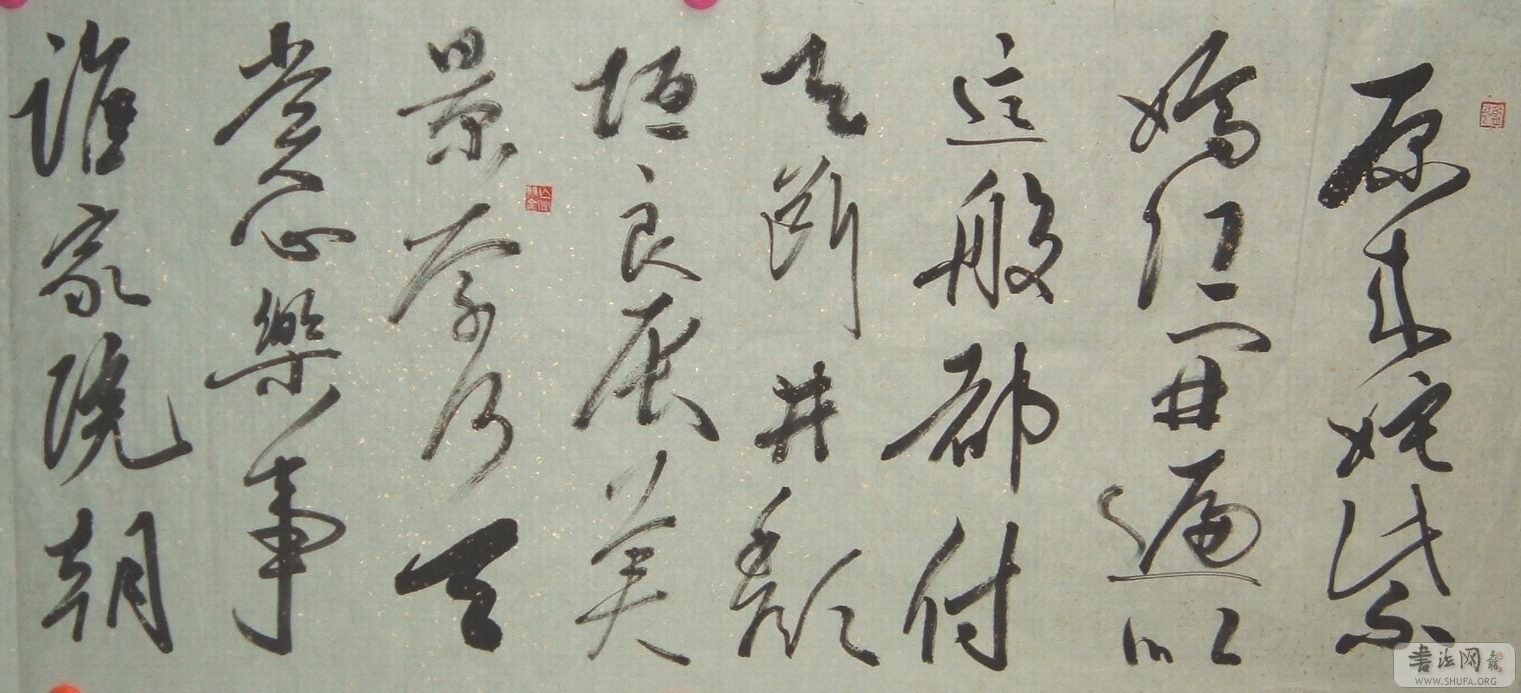 原來姹紫
嫣紅開遍似
這般都付
與斷井頹
垣良辰美
景奈何天
賞心樂事
誰家院朝
書法网
WWW.SHUFA.ORG